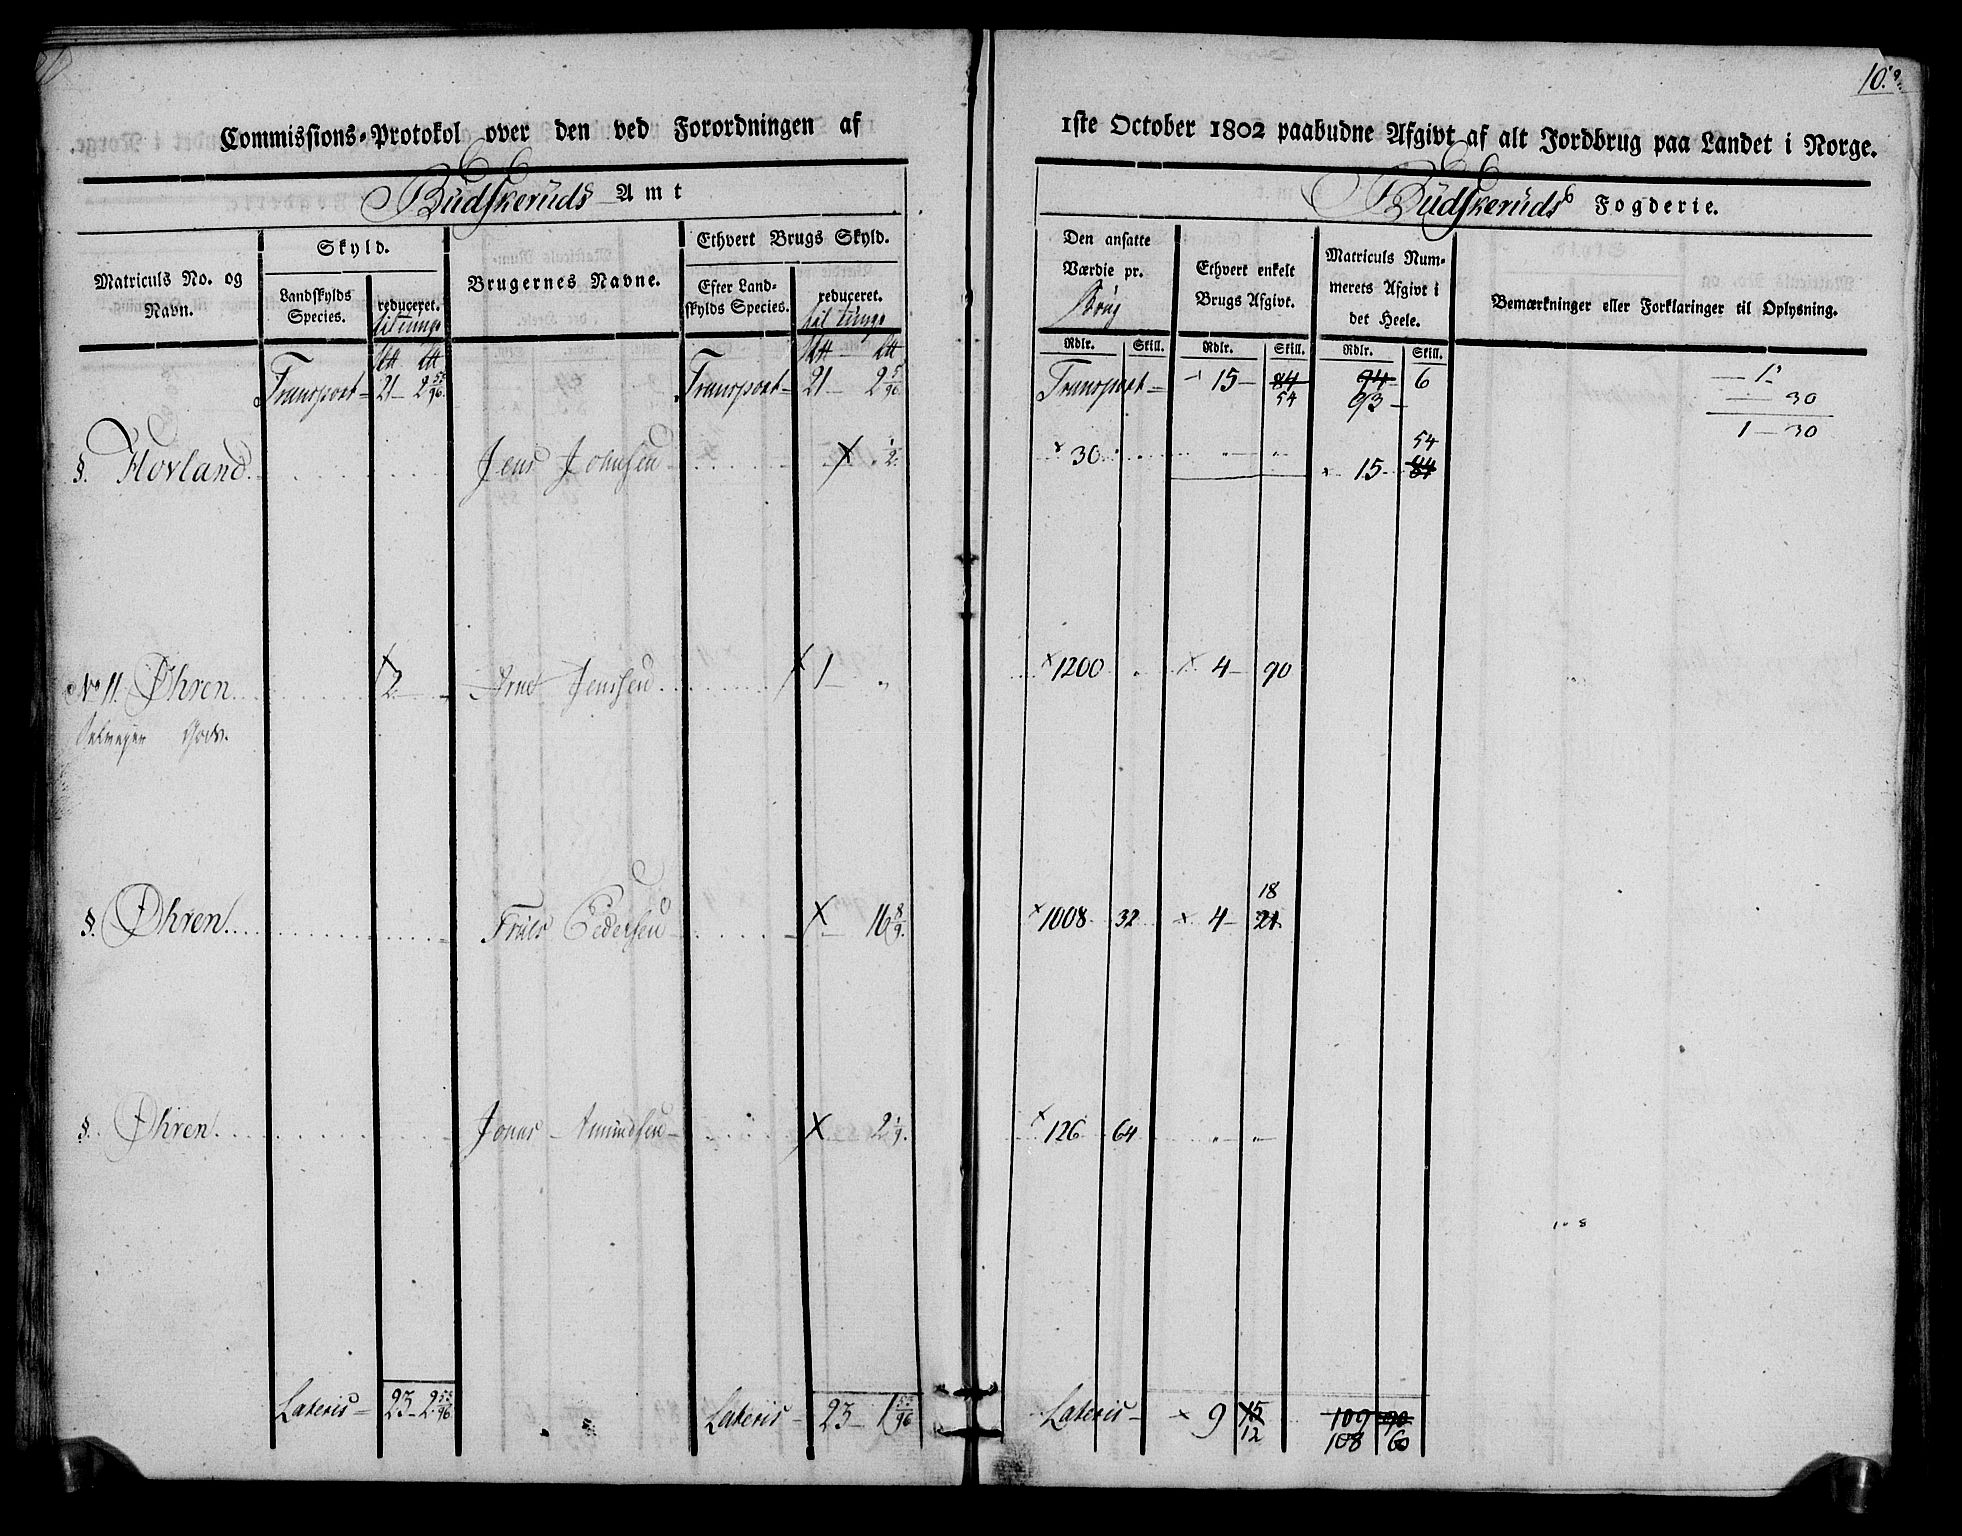 10.
Commissions-Protokol over den ved Forordningen af 1ste October 1802 paabudne Afgivt af alt Jordbrug paa Landet i Norge.
Budskeruds Amt
Budskeruds Fogderie.
Matriculs No. og Navn.
Skyld.
Landskylds Species.
reduceret.
til tunge
Brugernes Navne.
Ethvert Brugs Skyld.
Efter Landskylds Species.
reduceret.
til tunge
Den ansatte Værdie pr. Brug
Ethvert enkelt Brugs Afgivt.
Matriculs Nummerets Afgivt i det Heele.
Bemærkninger eller Forklaringer til Oplysning.
Rdlr. Skill. Rdlr. Skill. Rdlr. Skill.
Transport 21 - 2 53/96 Transport - 21 - 2 5/96 Transport - 15 - 84 54 94 6 93 -
1 "
30
1 - 30
§. Hovland. Jens Johnsen x 1/2 x 30 15 54 84
No 11. Øhren x 2 - Arne Jenssen x 1 - " x 1200 x 4 - 90
Selveyer Gods.
§. Øhren. Truls Pedersen x 16 8/9. x 1008 32 x 4 - 18 21
§. Øhren. Jonas Amundsen x 2 1/9. x 126 64 " "
Lateris - 23 - 2 53/96 Lateris - 23 - 1 55/96 Lateris - x 9 15 12 109 90 108 60